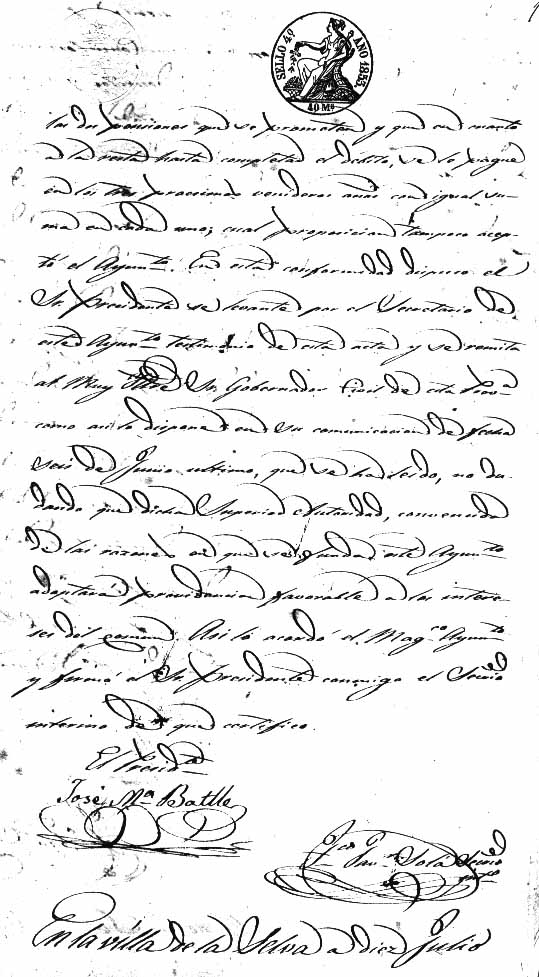 SELLO 4º AÑO 1853.
40 Ms
las dos pensiones que se prometen y que en cuanto
a la resta hasta completar el debito, se le pague
en los tres procsimos venideros años con igual su-
ma en cada uno; cual proposicion tampoco acep-
tó el Ayuntº. En esta conformidad dispuso el
Sr. Presidente se levante por el Secretario de
este Ayuntº testimonio de esta acta y se remita
al Muy Iltre Sr. Gobernador Civil de esta Provª
como asi lo dispone en su comunicacion de fecha
seis de Junio ultimo, que se ha leido, no du-
dando que dicha Superior Autoridad, convencida
de las razones en que se funda este Ayuntº
adoptará providencia favorable a los intere-
ses del comun. Asi lo acordó el Magcº Ayuntº
y firmó el Sr. Presidente conmigo el Srio
interino de que certifico.
El Presidte
José Mª Batlle
Solá Srio
En la villa de la Selva a diez Julio